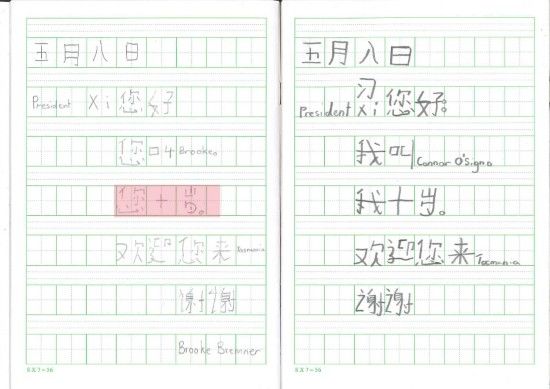 五月八日
President Xi 您好
您叫 Brooke。
您十岁。
欢迎您来 Tasmania
谢谢
Brooke Bremner
8 X 7=56
五月八日
习
President Xi 您好。
我叫 Connor
我十岁。
欢迎您来 Tasmania
谢谢
8 X 7=56